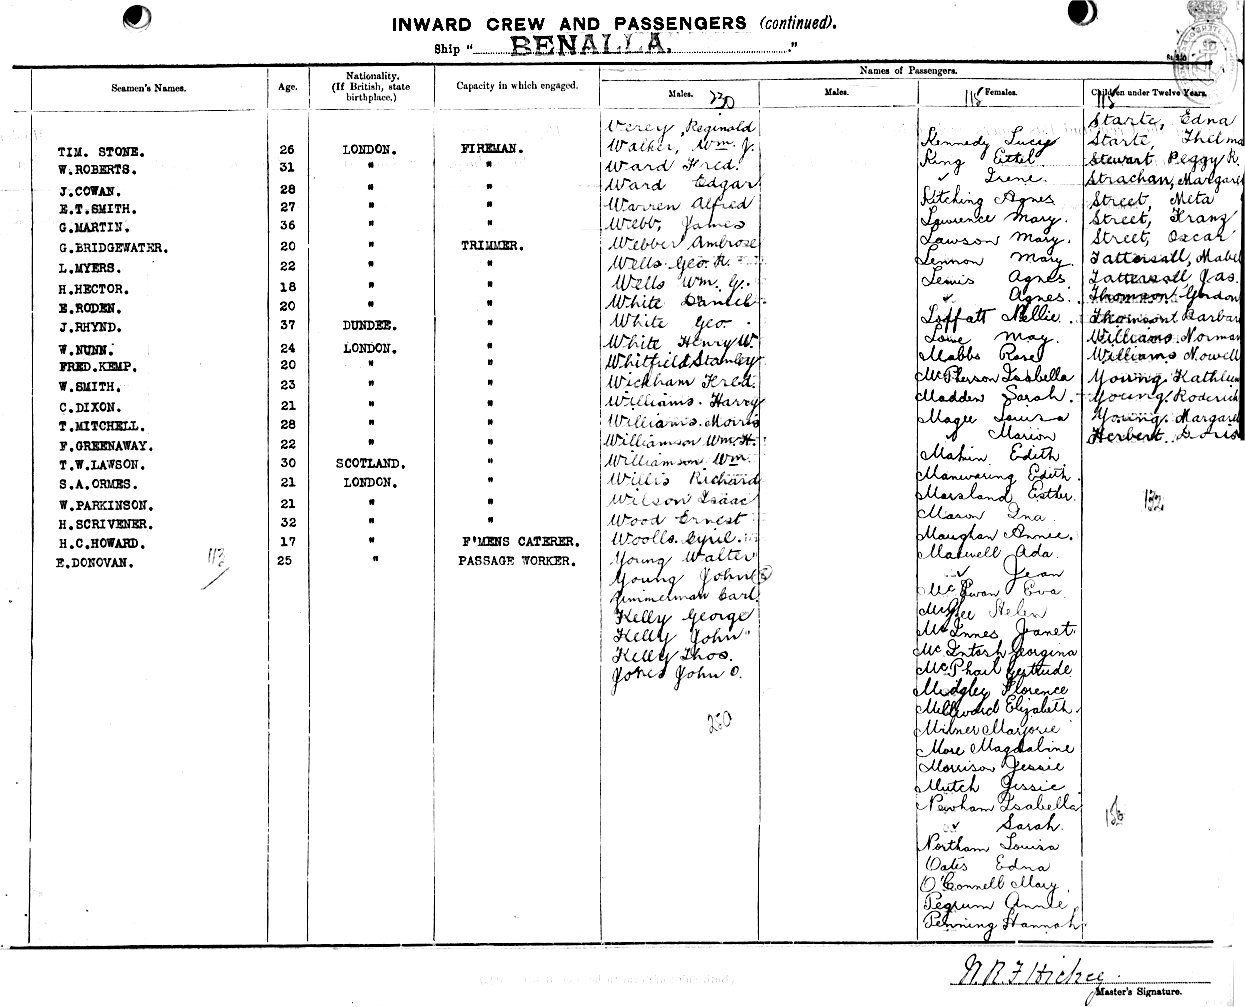 INWARD CREW AND PASSENGERS (continued).
Ship "BENALLA."
Seamen's Names.
Age.
Nationality.
(If British, state
birthplace.)
Capacity in which engaged.
Names of Passengers.
Males.
230
Males.
118
Females.
Children under Twelve Years.
118
TIM. STONE. 26 LONDON. FIREMAN.
W.ROBERTS. 31 " "
J.COWAN. 28 " "
E.T.SMITH. 27 " "
G.MARTIN. 36 " "
G.BRIDGEWATER. 20 " TRIMMER.
L.MYERS. 22 " "
H.HECTOR. 18 " "
E.RODEN. 20 " "
J.RHYND. 37 DUNDEE. "
W.NUNN. 24 LONDON. "
FRED.KEMP. 20 " "
W.SMITH. 23 " "
C.DIXON. 21 " "
T.MITCHELL. 28 " "
F.GREENAWAY. 22 " "
T.W.LAWSON. 30 SCOTLAND. "
S.A.ORMES. 21 LONDON. "
W.PARKINSON. 21 " "
H.SCRIVENER. 32 " "
H.C.HOWARD. 17 " F'MENS CATERER.
E.DONOVAN. 25 " PASSAGE WORKER.
Verey, Reginald
Walker, Wm. J.
Ward Fred.
Ward Edgar
Warren Alfred
Webb, James
Webber Ambrose
Wells Geo. R.
Wells Wm. G.
White Daniel
White Geo.
White Henry W.
Whitfield Stanley
Wickham Fred.
Williams. Harry
Williams. Morris
Williamson Wm. H.
Williamson Wm.
Willis Richard
Wilson Isaac
Wood Ernest
Woolls. Cyril.
Young Walter
Young John
Zimmerman Carl.
Kelly George
Kelly John
Kelly Thos.
Jones John O.
250
Kennedy Lucy
King Ettel
✓ Irene.
Kitching Agnes
Lawrence Mary.
Lawson Mary.
Lennon Mary
Lewis Agnes
✓ Agnes.
Loffatt Nellie
Lowe May.
Mabbs Rose
McPherson Isabella
Madden Sarah.
Magee Louisa
✓ Marion
Mahin Edith
Manwaring Edith
Marsland Esther
Mason Ina
Maughan Annie.
Maxwell Ada
✓ Jean
McEwan Eva
McGee Helen
McInnes Janet
McIntosh Georgina
McPhail Gertrude
Midgley Florence
Millward Elizabeth
Milner Marjorie
More Magdaline
Morrison Jessie
Mutch Jessie
Newham Isabella
✓ Sarah.
Northam Louisa
Oates Edna
O'Connell Mary
Pegrum Annie
Penning Hannah
Starte, Edna
Starte, Thelma
Stewart Peggy R.
Strachan, Margaret
Street, Meta
Street, Franz
Street, Oscar
Tattersall, Mabel
Tattersall Jas.
Thomson Gordon
Thomson Barbar
Williams Norman
Williams Nowell
Young. Kathleen
Young, Roderick
Young. Margaret
Herbert Doris
132
Master's Signature.